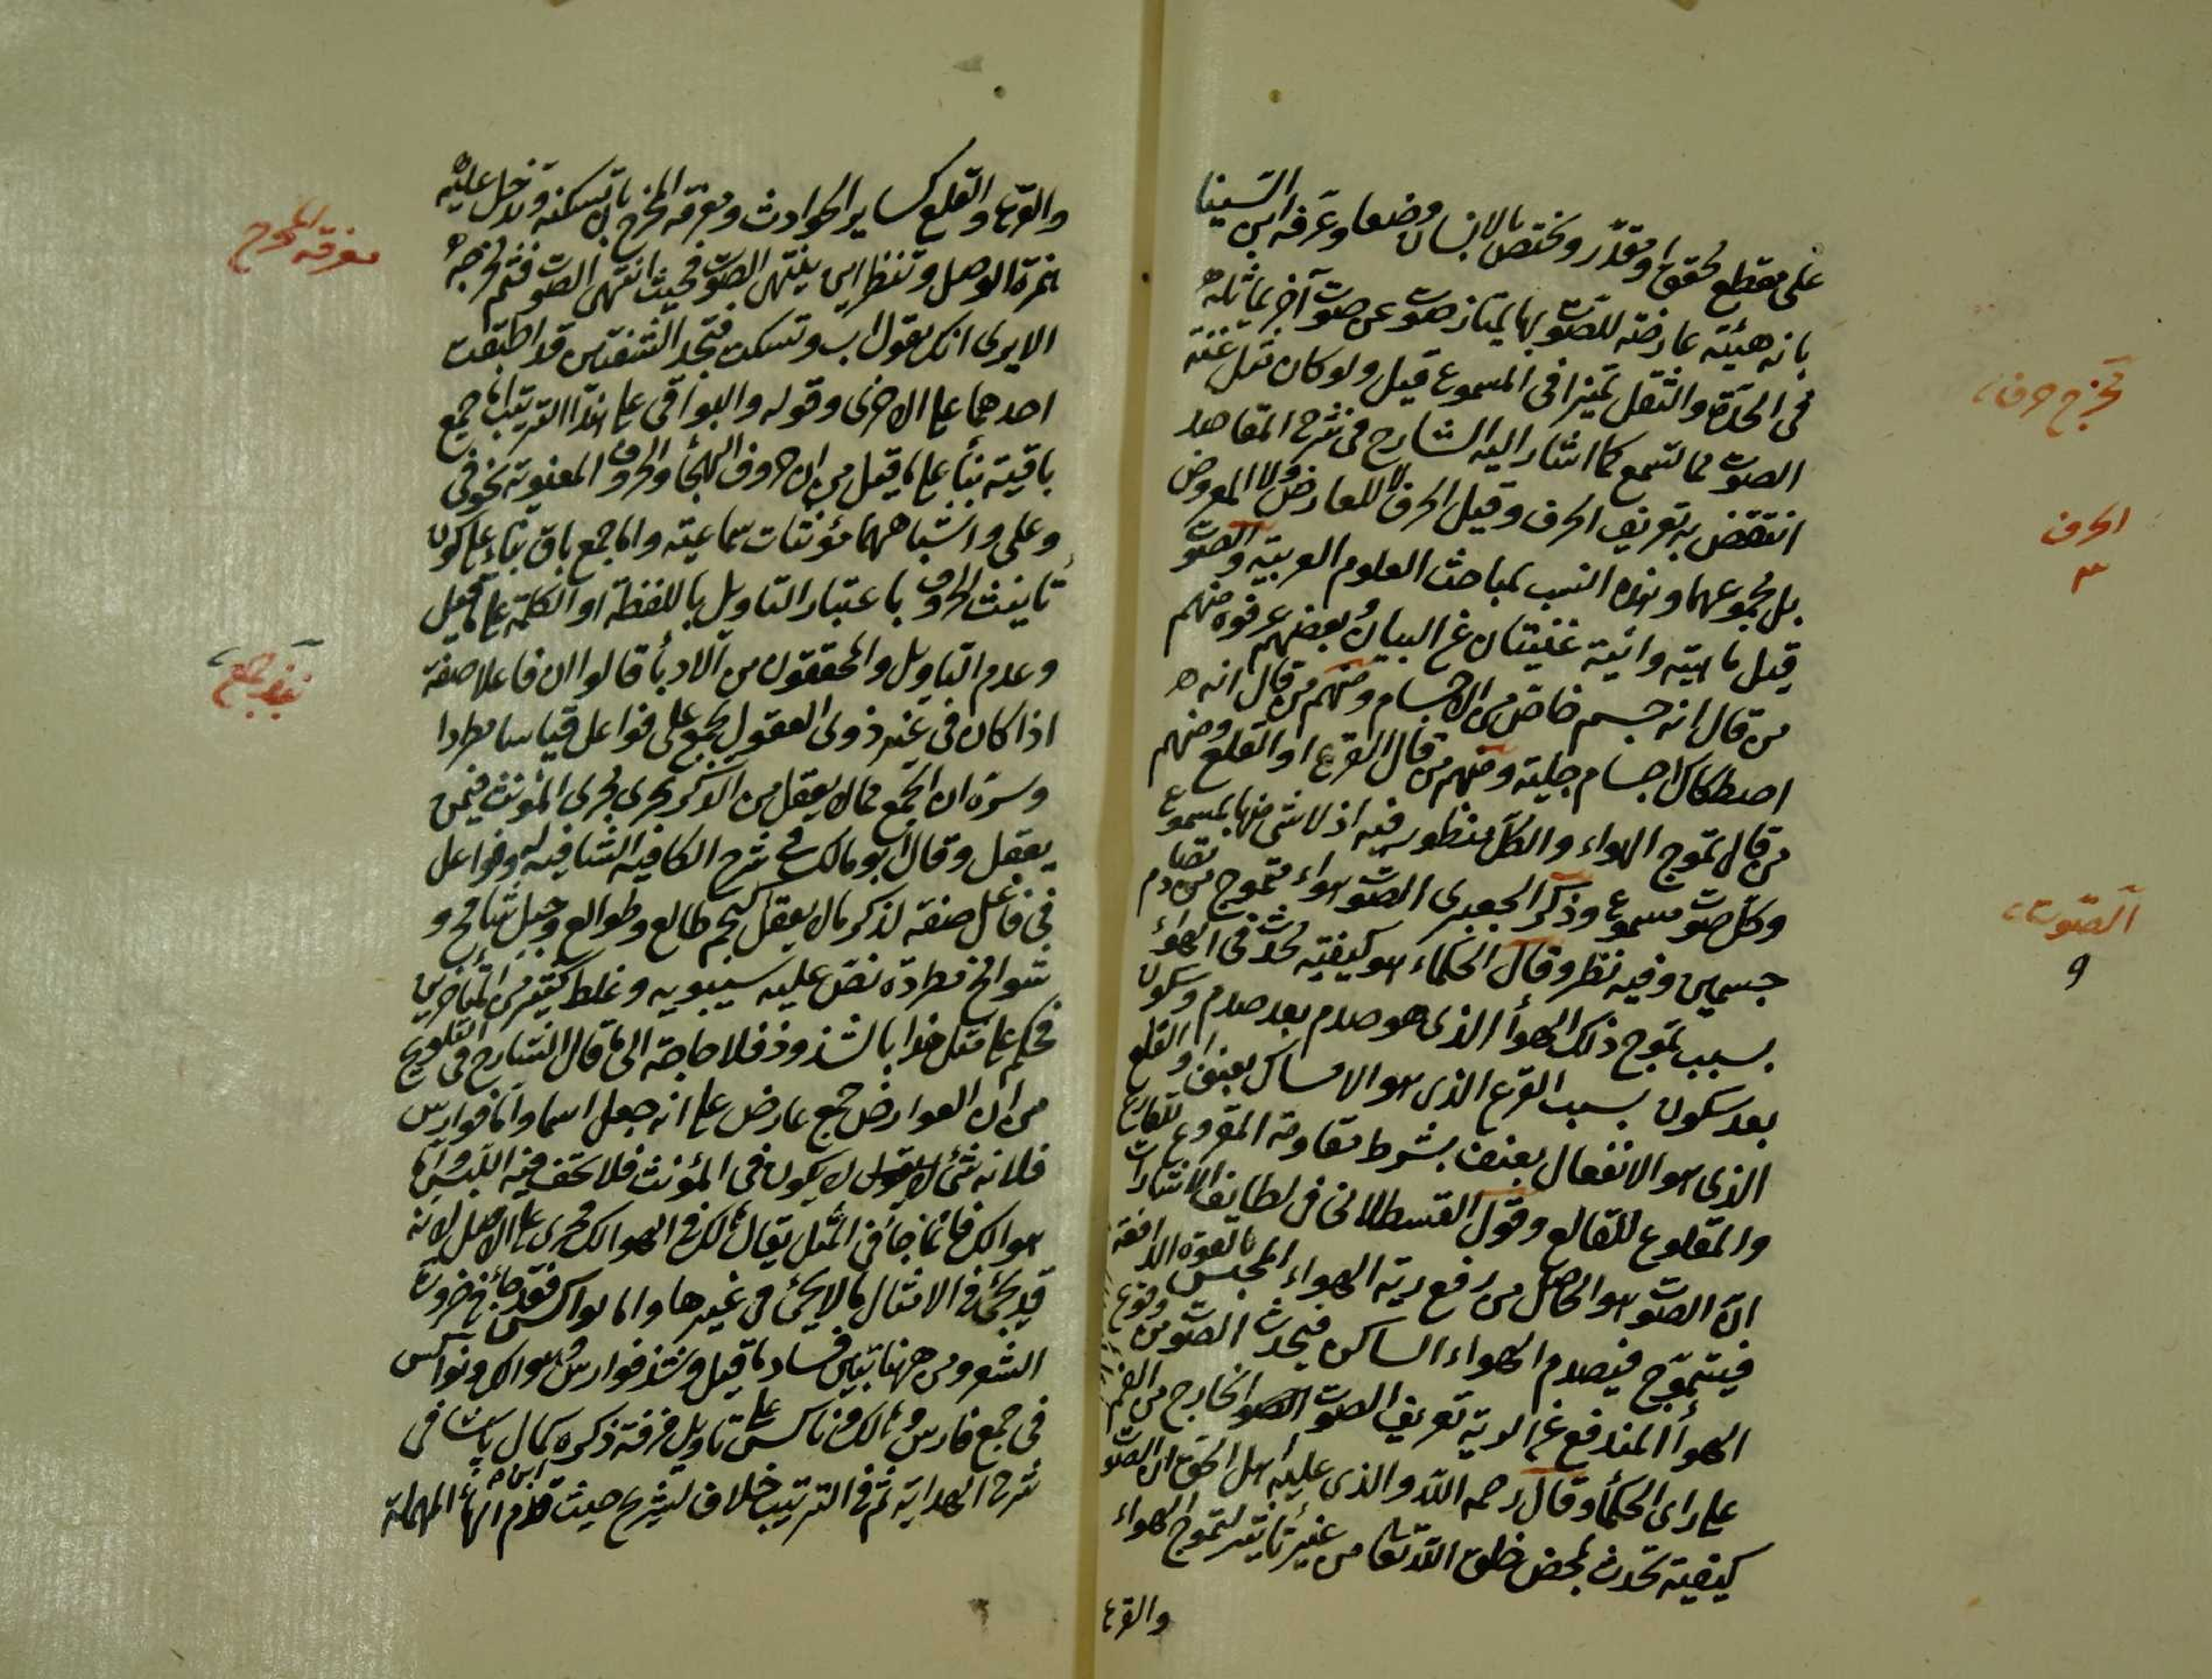 على مقطع محقق او مقدر ويختص بالانسان وضعا وعرفه ابن السينا
بانه هيئة عارضة للصوت بها يمتاز هو عن صوت آخر مماثله
فى الحدة والثقل تميزا فى المسموع قيل ولو كان مثل غنة
الصوت مما تسمع كما اشار اليه الشارح فى شرح المقاصد
انتقض به تعريف الحرف وقيل الحرف لا للعارض ولا المعروض
بل مجموعهما وهذه انسب بمباحث العلوم العربية والصوت
قيل ماهيته وانيته غنيتان عن البيان وبعضهم عرفوه منهم
من قال انه جسم خاص من الاجسام ومنهم من قال انه
اصطكاك اجسام جلية ومنهم من قال القرع او القلع ومنهم
من قال تموج الهواء والكل منظور فيه اذ لا شئ منها بمسموع
وكل صوت مسموع وذكر الجعبرى الصوت هواء متموج بتصادم
جسمين وفيه نظر وقال الحكماء هو كيفية تحدث فى الهواء
بسبب تموج ذلك الهوأ الذى هو صدم بعد صدم وسكون
بعد سكون بسبب القرع الذى هو الامساس بعنف او القلع
الذى هو الانفعال بعنف بشرط مقاومة المقروع للقارع
والمقلوع للقالع وقول القسطلانى فى لطايف الاشارات
ان الصوت هو الحاصل من رفع رية الهواء المحتبس بالقوة الدافعة
فيتموج فيصدم الهواء الساكن فيحدث الصوت من وقوع
الهوأ المندفع عن الرية تعريف الصوت الخارج من الفم
على راى الحكمأ وقال رحمه الله والذى عليه أهل الحق ان الصوت
كيفية تحدث بمحض خلق الله تعا من غير تأثير لتموج الهواء
والقرع
مخرج حرف
الحرف
٣
الصوت
٩
والقرع والقلع كساير الحوادث ومعرفة المخرج بان تسكنه وتدخل عليه
همزة الوصل وتنظر اين ينتهى الصوت فحيث انتهى الصوت فثم مخرجه
الا يرى انك تقول اب وتسكت فتجد الشفتين قد اطبقت
احدهما على الاخرى وقوله والبواقى على هذا الترتيب اما جمع
باقية بنأ على ما قيل من ان حروف الهجأ والحروف المعنوية نحو فى
وعلى واشباههما مؤنثات سماعية واما جمع باق بناء على كون
تأنيث الحروف باعتبار التاويل باللفظة او الكلمة على ما قيل
وعدم التاويل والمحققون من الادبأ قالوا ان فاعلا صفة
اذا كان فى غير ذوى العقول يجمع على فواعل قياسا مطردا
وسره ان الجمع مما لا يعقل من الذكر يجرى مجرى المؤنث فيمن
يعقل وقال ابو مالك فى شرح الكافيه الشافيه له وفواعل
فى فاعل صفة لذكر ما لا يعقل كنجم طالع وطوالع وجبل شامخ و
شوامخ مطردة نص عليه سيبويه وغلط كثير من المتأخرين
فحكم على مثل هذا بالشذوذ فلا حاجة الى ما قال الشارح فى التلويح
من ان العوارض جمع عارض على انه جعل اسما واما فوارس
فلانه شئ لا يكون فى المؤنث فلا يخف فيه اللبس واما
هوالك فانما جأ فى المثل يقال هالك فى الهوالك فجرى على الاصل لانه
قد يجئ فى الامثال ما لا يجئ فى غيرها واما نواكس فقد جأ فى ضرورة
الشعر ومن ههنا تبين فساد ما قيل وشذ فوارس وهوالك ونواكس
فى جمع فارس وهالك وناكس على تاويل فرقة ذكره كمال پاشا فى
شرح الهداية ثم فى الترتيب خلاف لشريح حيث قدم الهأ المهملة
معرفة المخرج
جمع